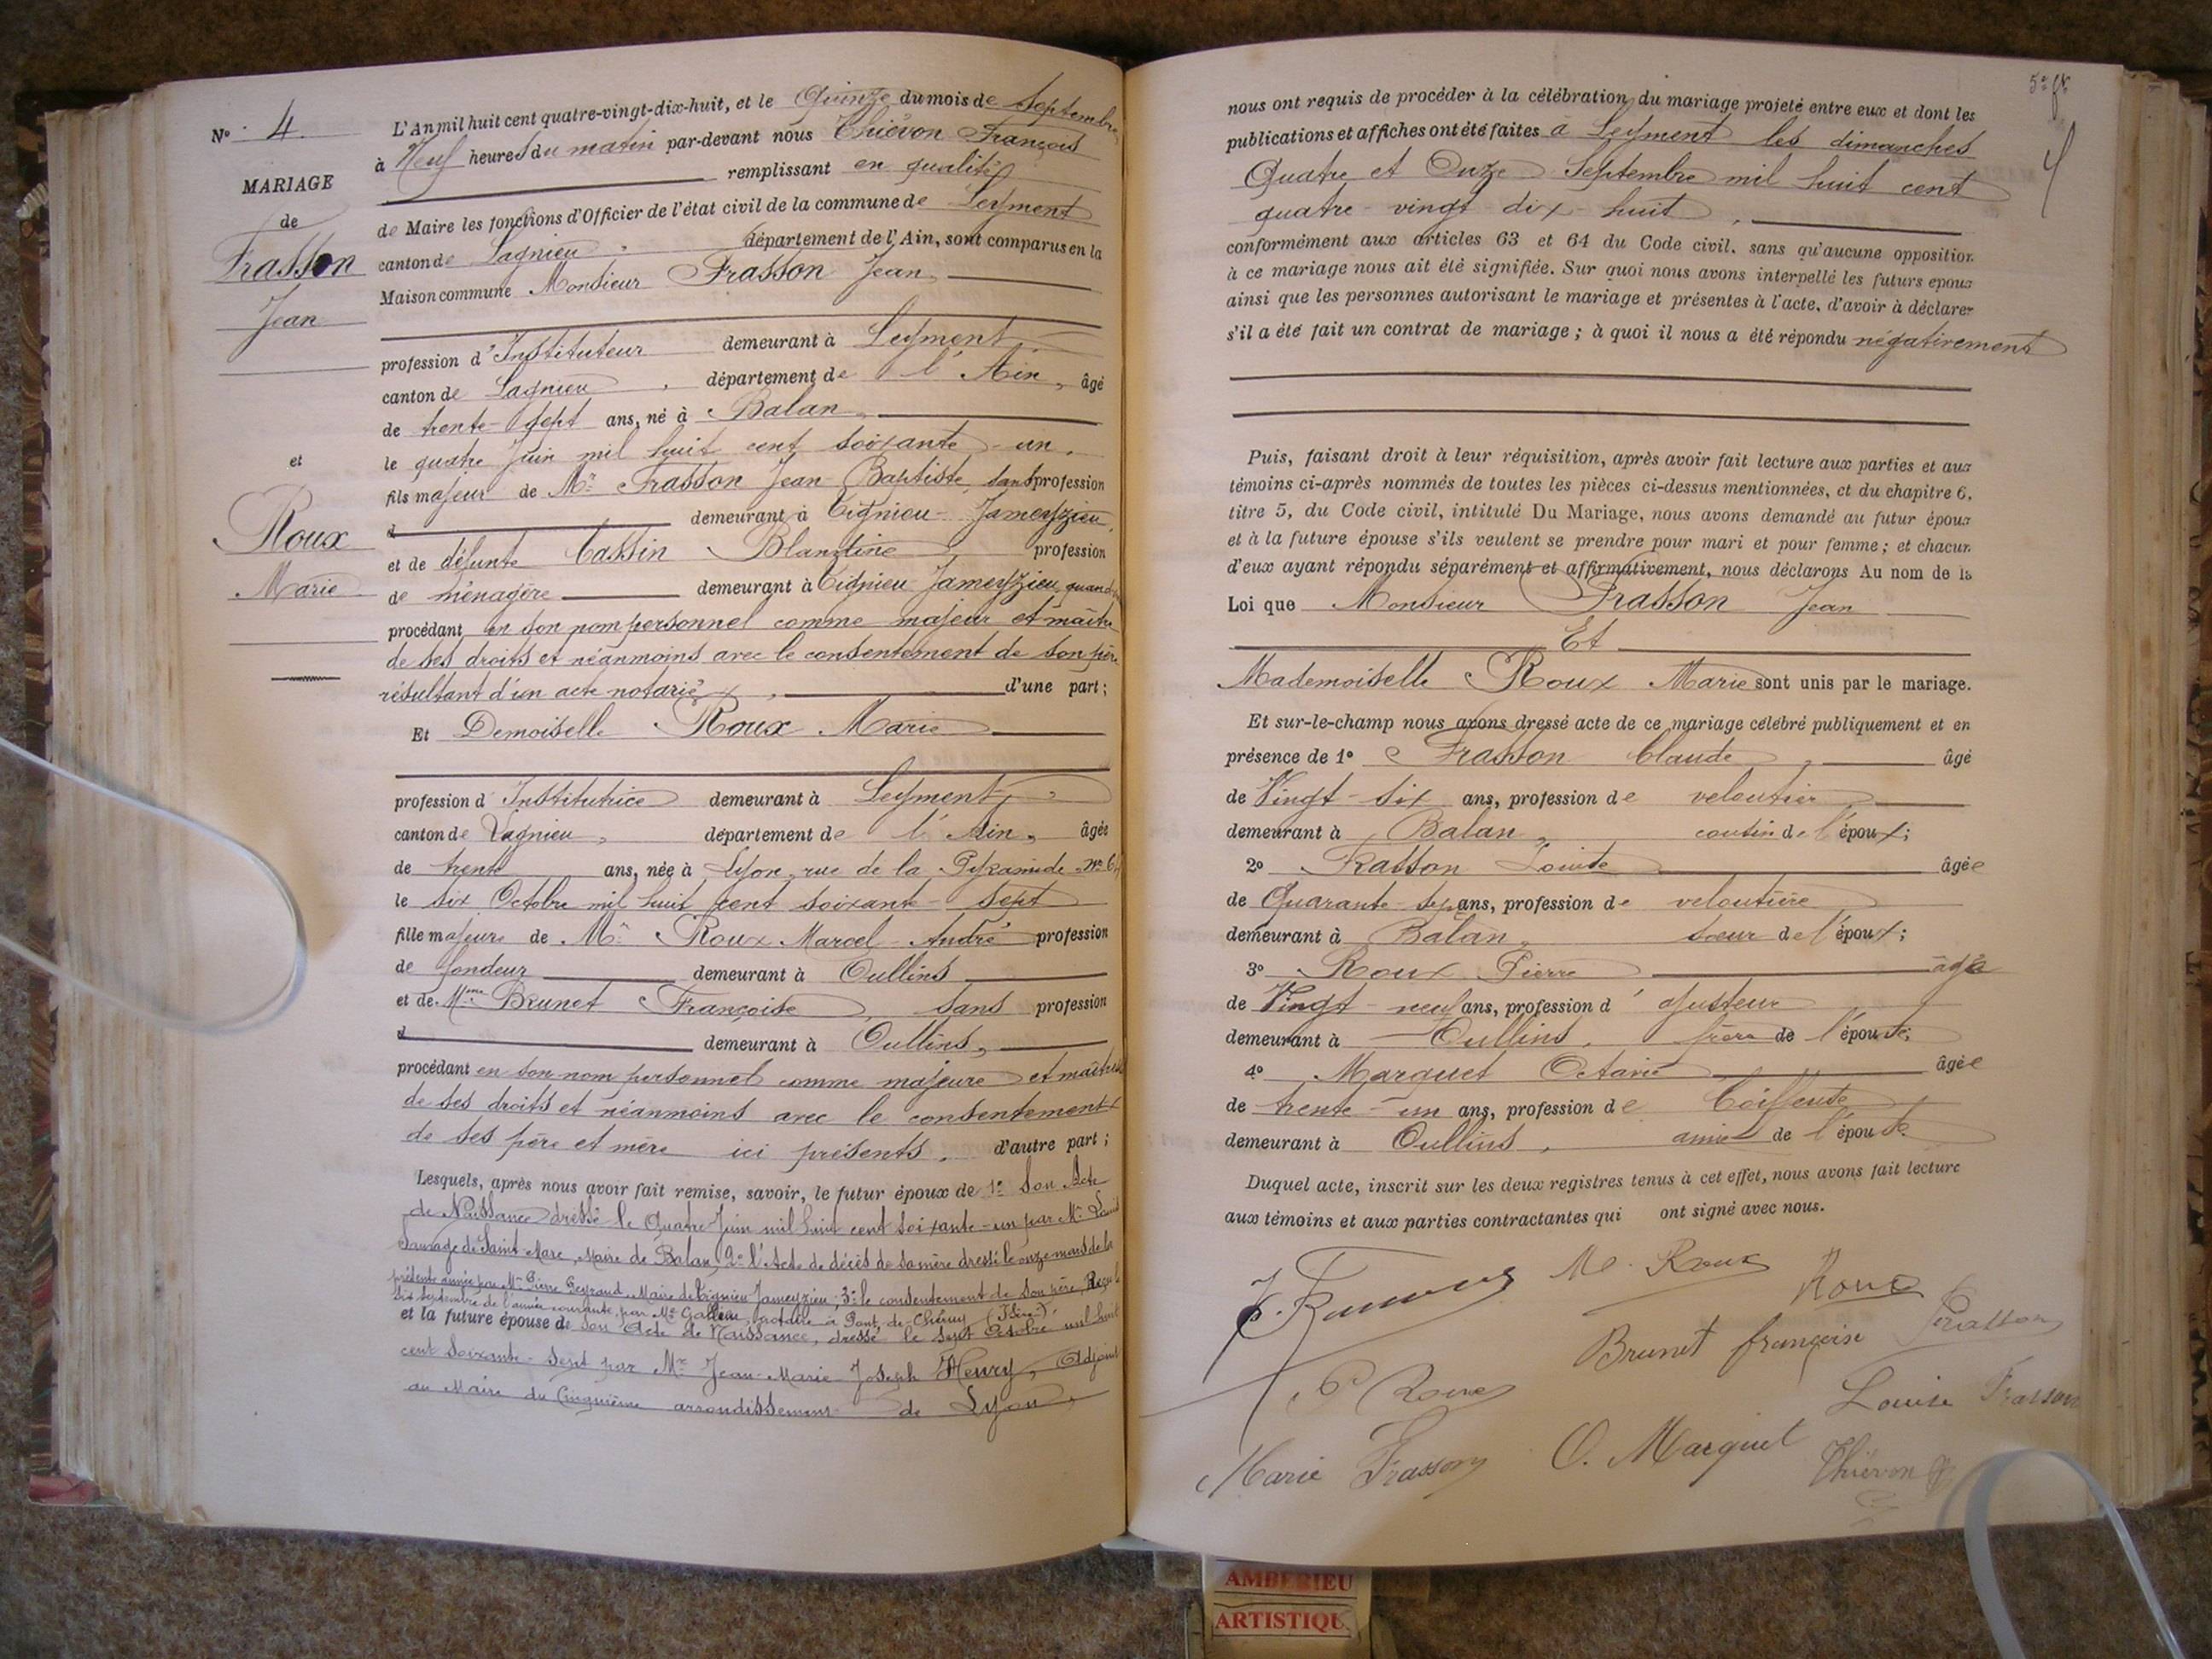 N° 4.
MARIAGE
de
Frasson
Jean
et
Roux
Marie
L'An mil huit cent quatre-vingt-dix-huit, et le Quinze du mois de Septembre
à Neuf heures du matin par-devant nous Thiévon François
remplissant en qualité
de Maire les fonctions d'Officier de l'état civil de la commune de Leyment
canton de Lagnieu, département de l'Ain, sont comparus en la
Maison commune Monsieur Frasson Jean
profession d'Instituteur demeurant à Leyment,
canton de Lagnieu, département de l'Ain, âgé
de trente-sept ans, né à Balan,
le quatre Juin mil huit cent soixante-un,
fils majeur de Mr Frasson Jean-Baptiste, sans profession
d demeurant à Tignieu-Jameyzieu,
et de défunte Cassin Blandine, profession
de ménagère demeurant à Tignieu-Jameyzieu, quand
procédant en son nom personnel comme majeur et maître
de ses droits et néanmoins avec le consentement de son père
résultant d'un acte notarié, d'une part;
Et Demoiselle Roux Marie
profession d'Institutrice demeurant à Leyment,
canton de Lagnieu, département de l'Ain, âgée
de trente ans, née à Lyon, rue de la Pyramide, N° 6,
le six Octobre mil huit cent soixante-sept
fille majeure de Mr Roux Marcel-André profession
de fondeur demeurant à Oullins
et de Mme Brunet Françoise, sans profession
d demeurant à Oullins,
procédant en son nom personnel comme majeure et maîtresse
de ses droits et néanmoins avec le consentement
de ses père et mère ici présents, d'autre part;
Lesquels, après nous avoir fait remise, savoir, le futur époux de 1° Son Acte
de Naissance dressé le Quatre Juin mil huit cent soixante-un par Mr
Sauvage de Saint-Marc, Maire de Balan, 2° l'Acte de décès de sa mère dressé le onze mars de la
présente année par Mr Pierre Maire de Tignieu-Jameyzieu; 3° le consentement de son père, Reçu le
six septembre de l'année courante, par Me notaire à Pont-de-Chéruy (Isère);
et la future épouse de son Acte de Naissance, dressé le sept Octobre mil huit
cent soixante-sept par Mr Jean-Marie-Joseph Henry, Adjoint
au Maire du Cinquième arrondissement de Lyon,
nous ont requis de procéder à la célébration du mariage projeté entre eux et dont les
publications et affiches ont été faites à Leyment les dimanches
Quatre et Onze Septembre mil huit cent
quatre-vingt-dix-huit,
conformément aux articles 63 et 64 du Code civil, sans qu'aucune opposition
à ce mariage nous ait été signifiée. Sur quoi nous avons interpellé les futurs epoux
ainsi que les personnes autorisant le mariage et présentes à l'acte, d'avoir à déclarer
s'il a été fait un contrat de mariage; à quoi il nous a été répondu négativement
Puis, faisant droit à leur réquisition, après avoir fait lecture aux parties et aux
témoins ci-après nommés de toutes les pièces ci-dessus mentionnées, et du chapitre 6,
titre 5, du Code civil, intitulé Du Mariage, nous avons demandé au futur époux
et à la future épouse s'ils veulent se prendre pour mari et pour femme; et chacun
d'eux ayant répondu séparément et affirmativement, nous déclarons Au nom de la
Loi que Monsieur Frasson Jean
Et
Mademoiselle Roux Marie sont unis par le mariage.
Et sur-le-champ nous avons dressé acte de ce mariage célébré publiquement et en
présence de 1° Frasson Claude, âgé
de Vingt-six ans, profession de veloutier
demeurant à Balan, cousin de l'époux;
2° Frasson Louise âgée
de Quarante-sept ans, profession de veloutière
demeurant à Balan, sœur de l'époux;
3° Roux Pierre âgé
de Vingt-neuf ans, profession d'ajusteur
demeurant à Oullins, frère de l'épouse;
4° Marquet Octavie âgée
de trente-un ans, profession de Coiffeuse
demeurant à Oullins, amie de l'épouse.
Duquel acte, inscrit sur les deux registres tenus à cet effet, nous avons fait lecture
aux témoins et aux parties contractantes qui ont signé avec nous.
M. Roux
Roux
Brunet françoise
Frasson
P Roux
Louise Frasson
Marie Frasson
O. Marquet
Thiévon
AMBERIEU
ARTISTIQU